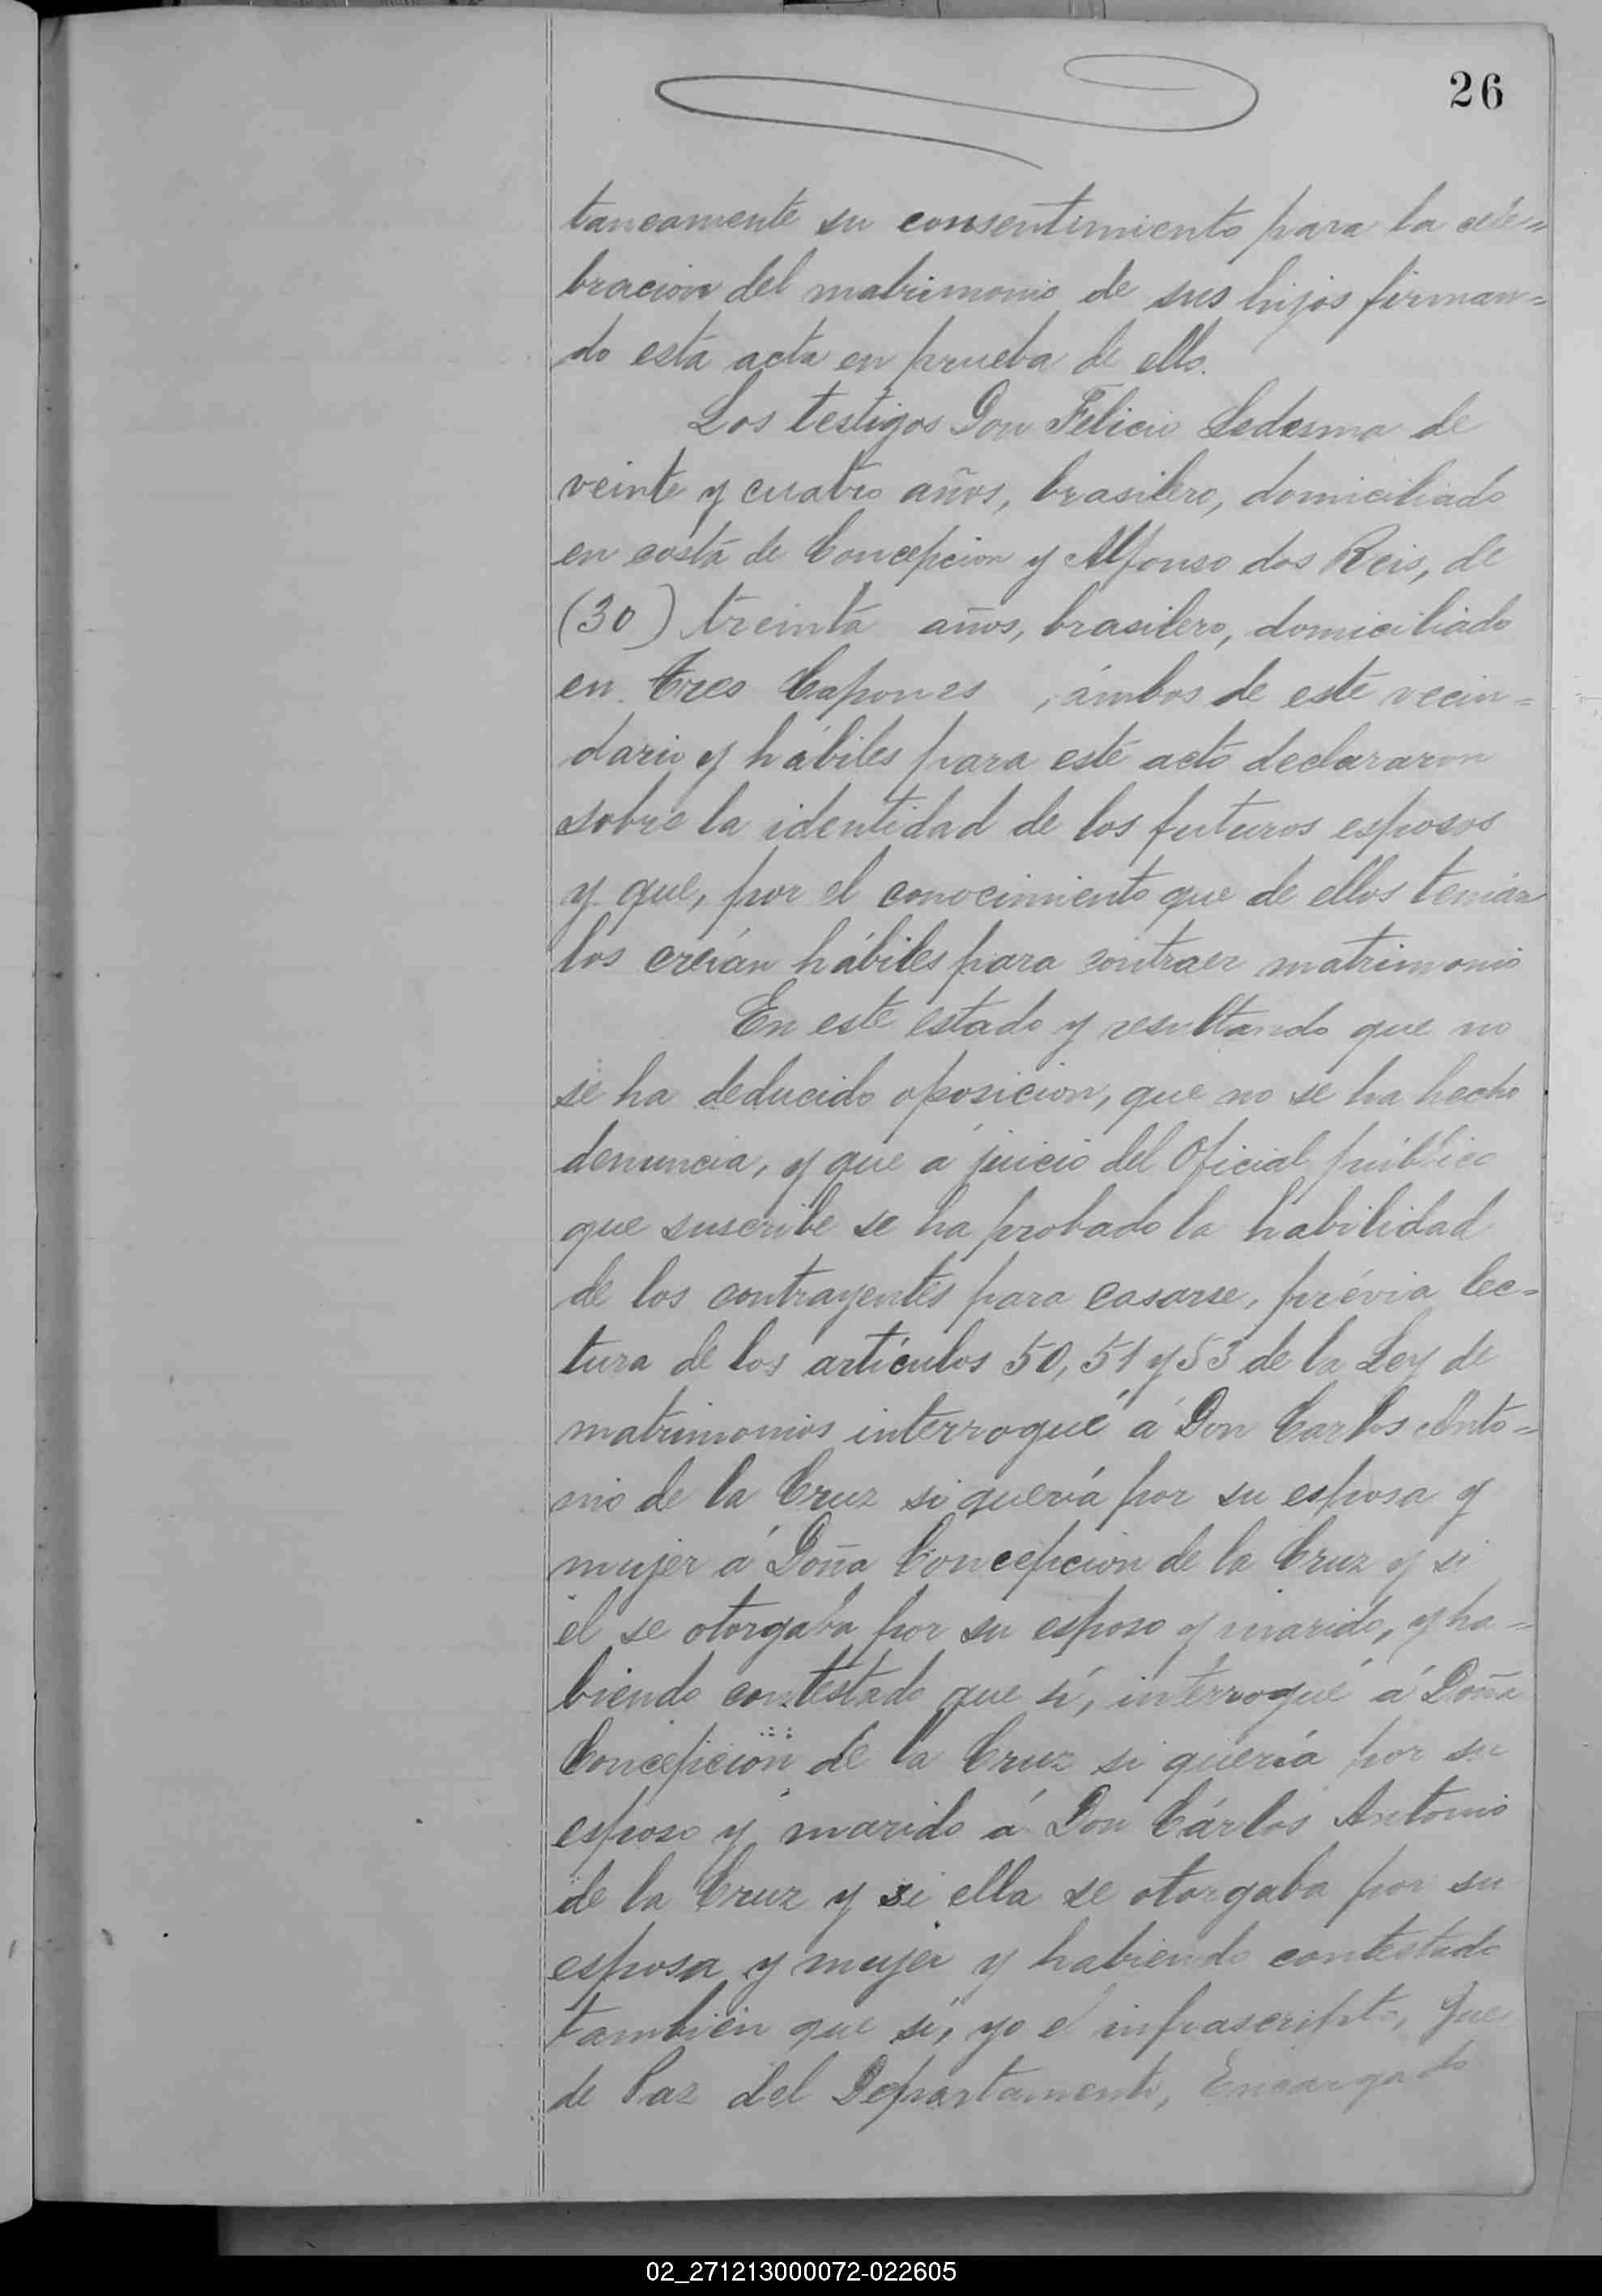 26
taneamente su consentimiento para la cele=
bracion del matrimonio de sus hijos firman=
do esta acta en prueba de ello.
Los testigos Don Felicio Ledesma de
veinte y cuatro años, brasilero, domiciliado
en costa de Concepcion y Alfonso dos Reis, de
(30) treinta años, brasilero, domiciliado
en Tres Capones, ámbos de este vecin=
dario y hábiles para este acto declararon
sobre la identidad de los futuros esposos
y que, por el conocimiento que de ellos tenián
los creián hábiles para contraer matrimonio
En este estado y resultando que no
se ha deducido oposicion, que no se ha hecho
denuncia, y que á juicio del Oficial público
que suscribe se ha probado la habilidad
de los contrayentes para casarse, prévia lec=
tura de los artículos 50, 51 y 53 de la Ley de
matrimonios interrogué á Don Carlos Anto=
nio de la Cruz si queriá por su esposa y
mujer á Doña Concepcion de la Cruz y si
él se otorgaba por su esposo y marido, y ha=
biendo contestado que sí, interrogué á Doña
Concepcion de la Cruz si quería por su
esposo y marido á Don Cárlos Antonio
de la Cruz y si ella se otorgaba por su
esposa y mujer y habiendo contestado
tambien que sí, yo el infrascripto, Juez
de Paz del Departamento, Encargado
02_271213000072-022605